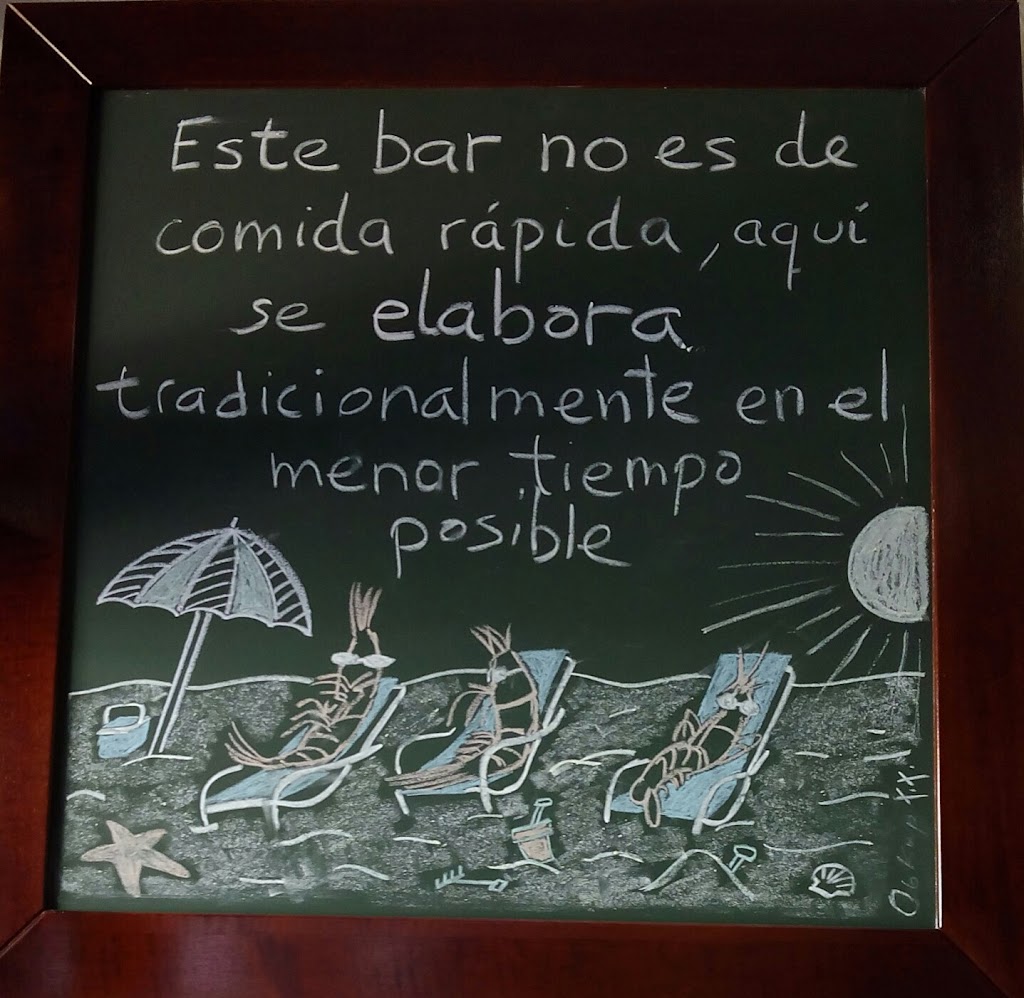 Este bar no es de
comida rápida, aquí
se elabora
tradicionalmente en el
menor tiempo
posible